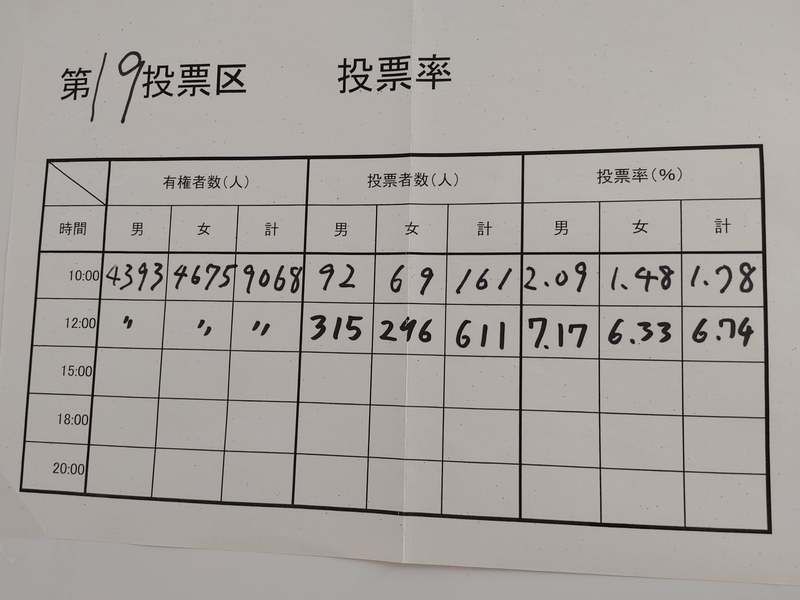 第19投票区 投票率
有権者数(人) 投票者数(人) 投票率(%)
時間 男 女 計 男 女 計 男 女 計
10:00 4393 4675 9068 92 69 161 2.09 1.48 1.78
12:00 〃 〃 〃 315 296 611 7.17 6.33 6.74
15:00
18:00
20:00